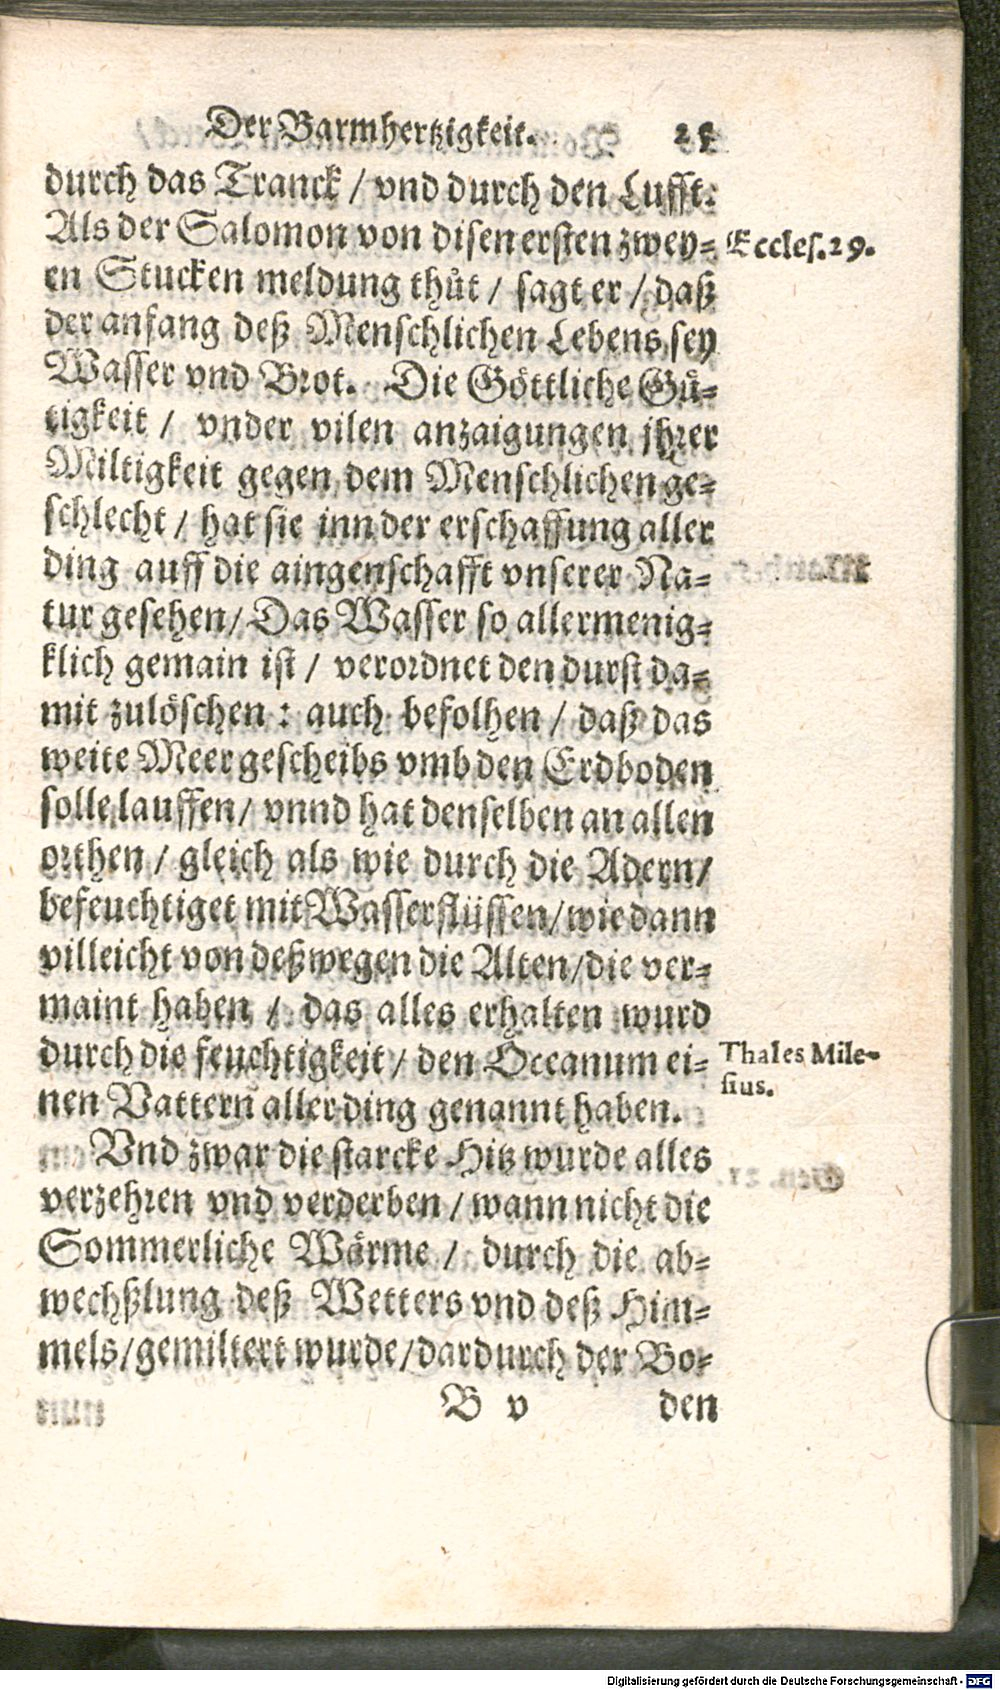 Der Barmhertzigkeit. 25
durch das Tranck / vnd durch den Lufft:
Als der Salomon von disen ersten zwey=
en Stucken meldung thůt / sagt er / daß
der anfang deß Menschlichen Lebens sey
Wasser vnd Brot. Die Göttliche Gü=
tigkeit / vnder vilen anzaigungen jhrer
Miltigkeit gegen dem Menschlichen ge=
schlecht / hat sie inn der erschaffung aller
ding auff die aingenschafft vnserer Na=
tur gesehen / Das Wasser so allermenig=
klich gemain ist / verordnet den durst da=
mit zulöschen : auch befolhen / daß das
weite Meer gescheibs vmb den Erdboden
solle lauffen / vnnd hat denselben an allen
orthen / gleich als wie durch die Adern /
befeuchtiget mit Wasserflüssen / wie dann
villeicht von deßwegen die Alten / die ver=
maint haben / das alles erhalten wurd
durch die feuchtigkeit / den Oceanum ei=
nen Vattern aller ding genannt haben.
Vnd zwar die starcke Hitz wurde alles
verzehren vnd verderben / wann nicht die
Sommerliche Wärme / durch die ab=
wechßlung deß Wetters vnd deß Him=
mels / gemiltert wurde / dardurch der Bo=
B v den
Eccles. 29.
Thales Mile-
sius.
Digitalisierung gefördert durch die Deutsche Forschungsgemeinschaft - DFG